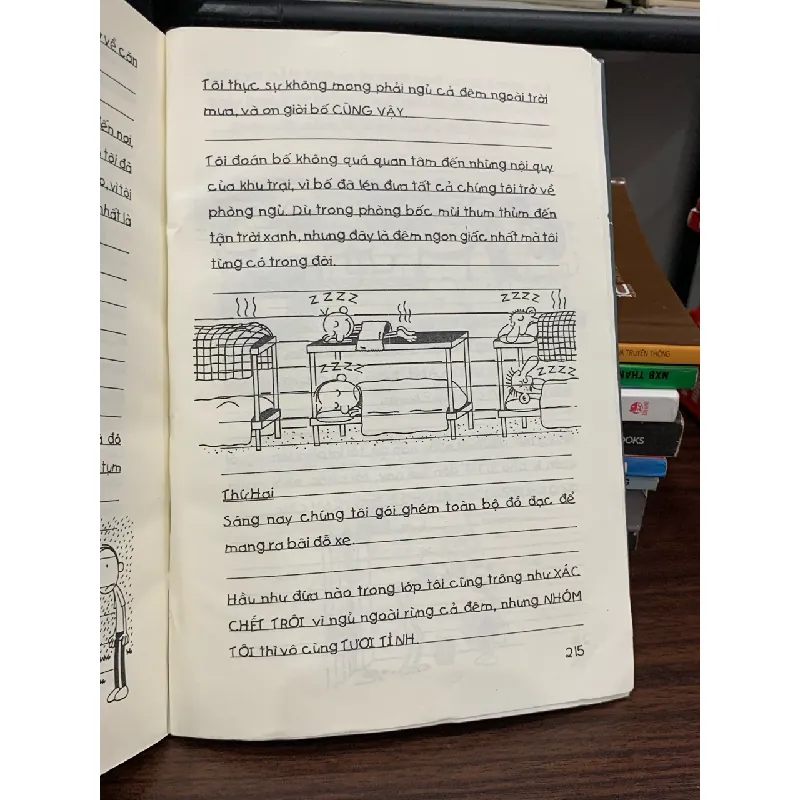 về căn
đến nơi.
tôi đã
o, vì tôi
nhất là
đó
tụm
Tôi thực sự không mong phải ngủ cả đêm ngoài trời
mưa, và ơn giời bố CŨNG VẬY.
Tôi đoán bố không quá quan tâm đến những nội quy
của khu trại, vì bố đã lén đưa tất cả chúng tôi trở về
phòng ngủ. Dù trong phòng bốc mùi thum thủm đến
tận trời xanh, nhưng đây là đêm ngon giấc nhất mà tôi
từng có trong đời.
ZZZZ
ZZZZ
ZZZZ
ZZZZ
Thứ Hai
Sáng nay chúng tôi gói ghém toàn bộ đồ đạc để
mang ra bãi đỗ xe.
Hầu như đứa nào trong lớp tôi cũng trông như XÁC
CHẾT TRÔI vì ngủ ngoài rừng cả đêm, nhưng NHÓM
TÔI thì vô cùng TƯƠI TỈNH.
215
TRUYỀN THÔNG
NXB THAN
OOKS